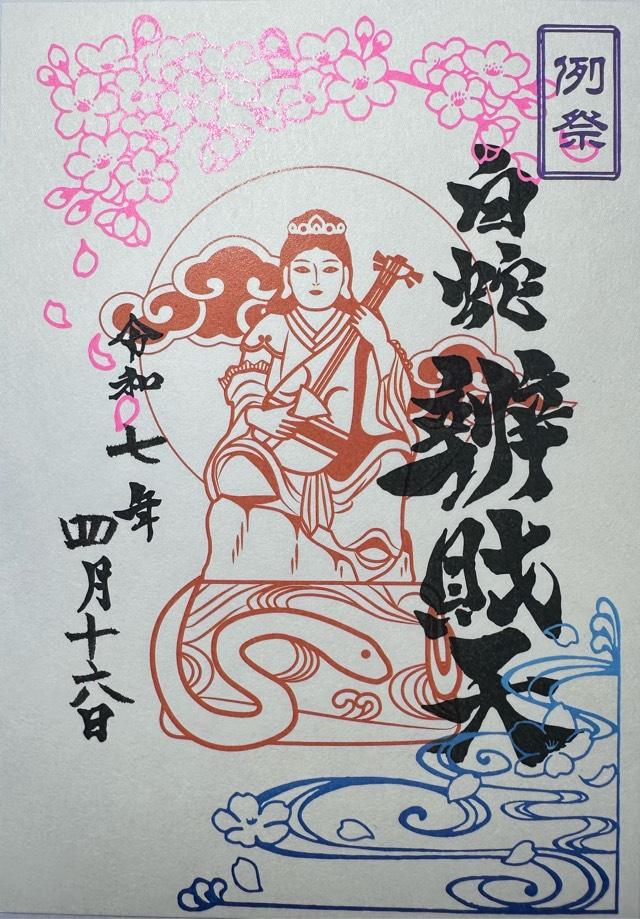 例祭
白蛇辨財天
令和七年
四月十六日